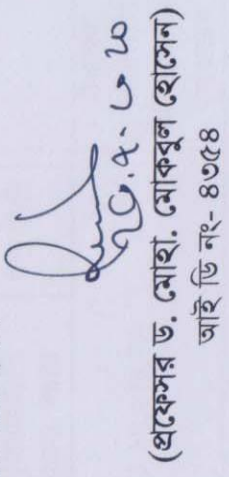 (প্রফেসর ড. মোহা. মোকবুল হোসেন)
আই ডি নং- ৪৩৫৪